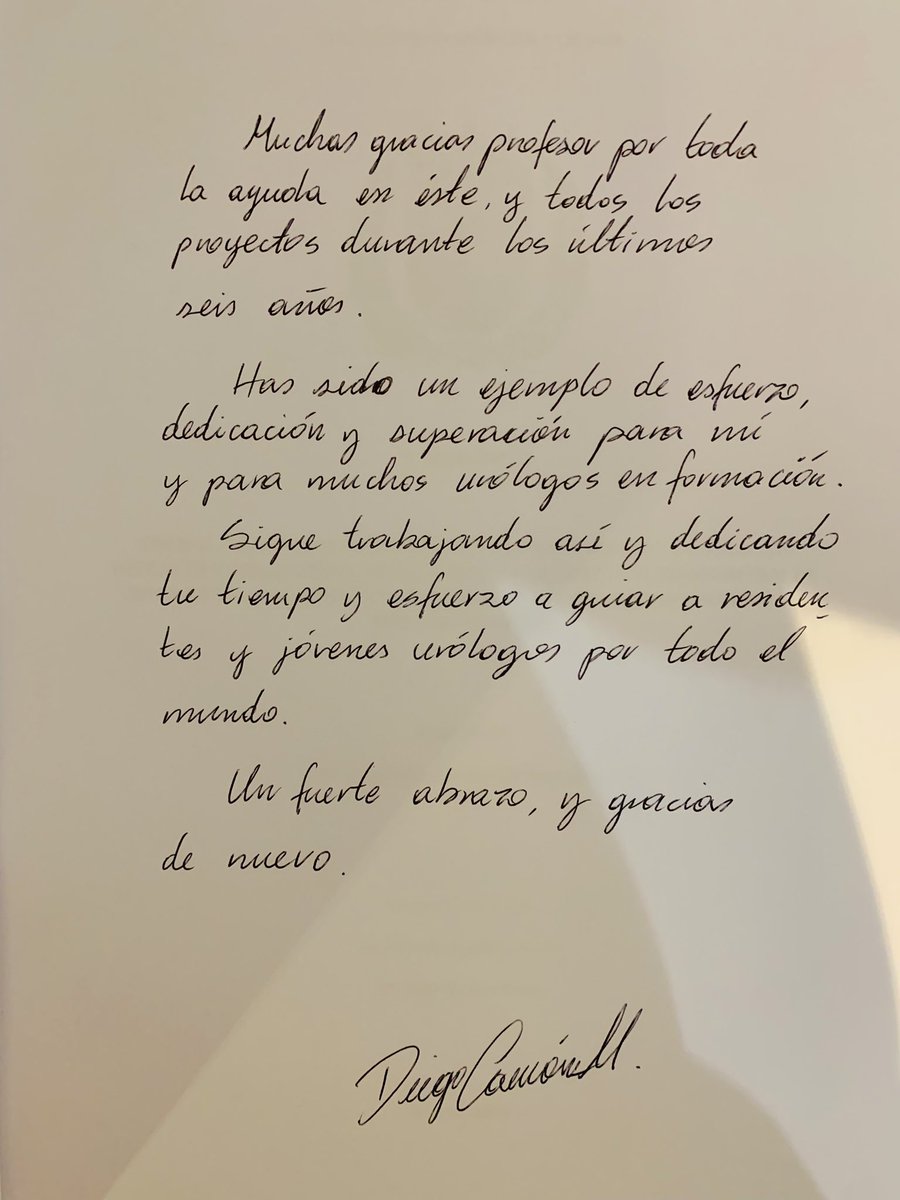 Muchas gracias profesor por toda
la ayuda en éste, y todos los
proyectos durante los últimos
seis años.
Has sido un ejemplo de esfuerzo,
dedicación y superación para mí
y para muchos urólogos en formación.
Sigue trabajando así y dedicando
tu tiempo y esfuerzo a guiar a residen
tes y jóvenes urólogos por todo el
mundo.
Un fuerte abrazo, y gracias
de nuevo.
Diego